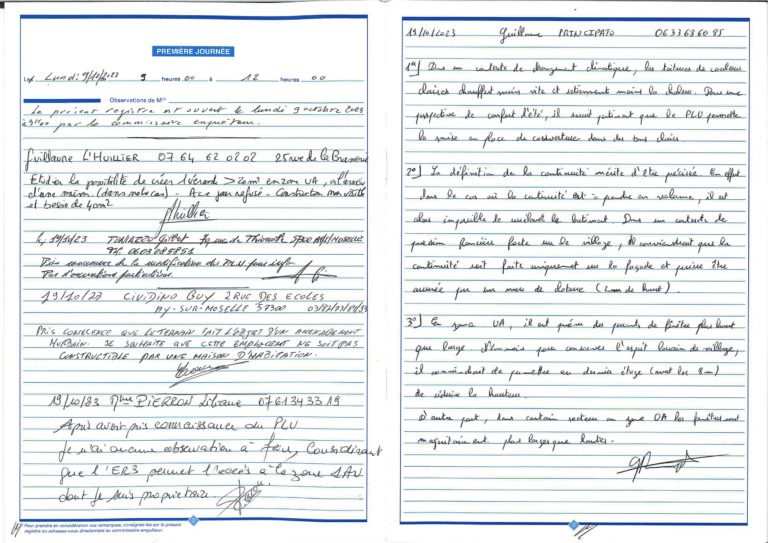 PREMIÈRE JOURNÉE
Les Lundi 9/10/2023 de 9 heures 00 à 12 heures 00
Observations de M
Le présent registre est ouvert le lundi 9 octobre 2023
à 9h00 par le commissaire enquêteur.
Guillaume L'HUILLIER 07 64 62 02 02 25 rue de la Brasserie
Etudier la possibilité de créer 1 véranda > 20m² en zone UA, à l'arrière
d'une maison (dans notre cas) - Ace jour refusé - Construction non visible
et besoin de 40m²
L'huillier
le 19/10/23 rue de Thionville 57300 AY/MOSELLE
Tél. 0603089851
Prise connaissance de la modification du PLU pour info
Pas d'observations particulières.
19/10/23 CIVIDINO GUY 2 RUE DES ECOLES
AY-SUR-MOSELLE 57300
PRIS CONSCIENCE QUE LE TERRAIN FAIT L'OBJET D'UN AMENAGEMENT
JE SOUHAITE QUE CETTE EMPLACEMENT NE SOIT PAS
CONSTRUCTIBLE PAR UNE MAISON D'HABITATION.
19/10/23 Mme PIERRON Liliane 0761343319
Après avoir pris connaissance du PLU
Je n'ai aucune observation à faire, Considérant
que l'ER3 permet l'accès à la zone 1AU
dont je suis propriétaire.
Pour prendre en considération vos remarques, consignez-les sur le présent
registre ou adressez-vous directement au commissaire-enquêteur
19/10/2023 Guillaume PRINCIPATO 0633686095
1°] Dans un contexte de changement climatique, les toitures de couleurs
claires chauffent moins vite et retiennent moins la chaleur. Dans une
perspective de confort d'été, il serait pertinent que le PLU permette
la mise en place de couverture dans des tons clairs.
2°] La définition de la continuité mérite d'être précisée. En effet
dans le cas où la continuité est à prendre en volume, il est
alors impossible de le bâtiment. Dans un contexte de
pression foncière forte sur le village, il conviendrait que la
continuité soit faite uniquement sur la façade et puisse être
assurée par un mur de clôture (2m de haut).
3°] En zone UA, il est prévu des percements de fenêtre plus haut
que large. Néanmoins pour conserver l'esprit lorrain de village,
il conviendrait de permettre au dernier étage (avant les 8m)
de réduire la hauteur.
D'autre part, dans certain secteur en zone UA les fenêtres sont
majoritairement plus larges que hautes.